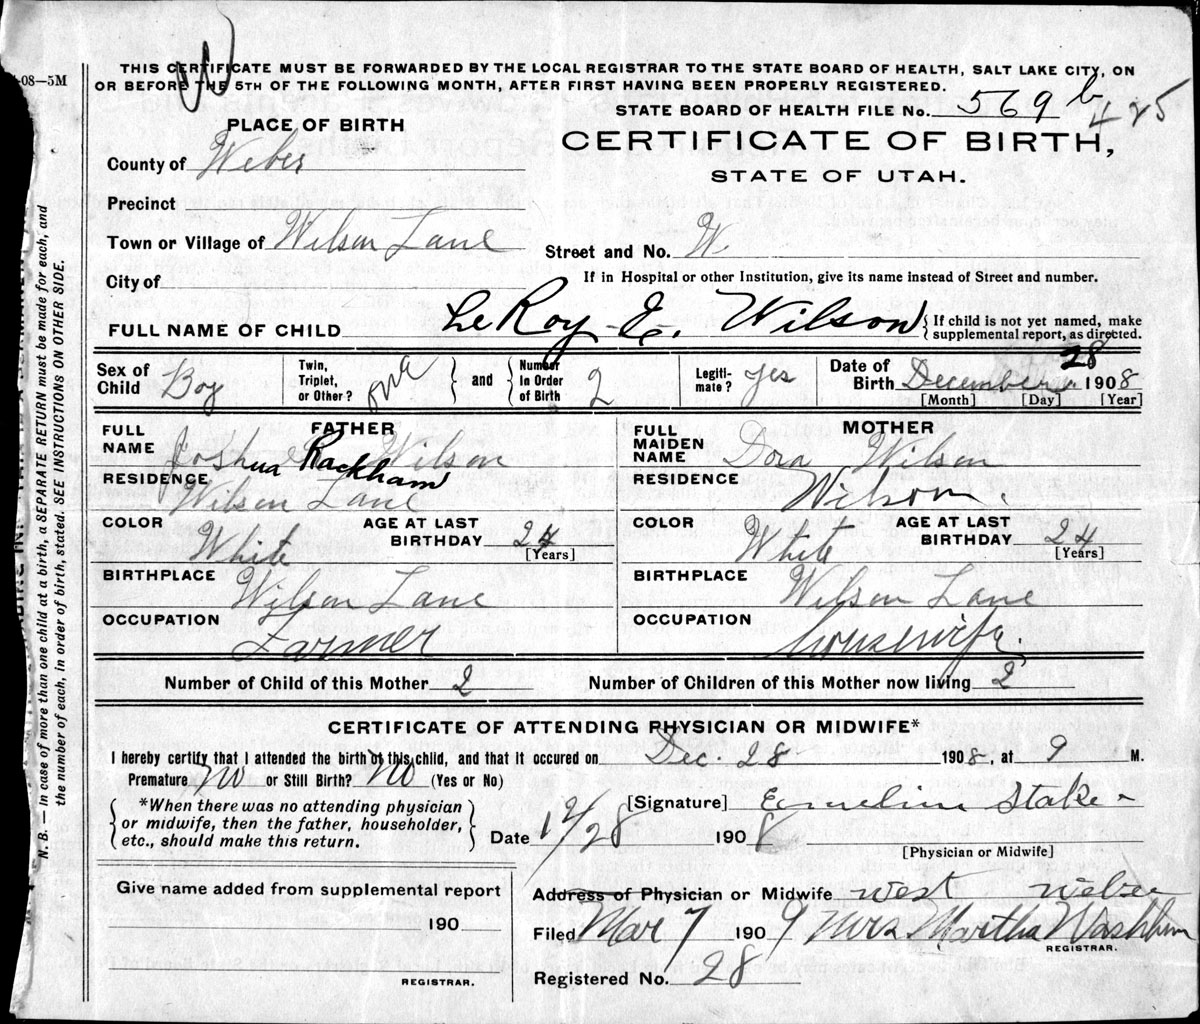 -08—5M
THIS CERTIFICATE MUST BE FORWARDED BY THE LOCAL REGISTRAR TO THE STATE BOARD OF HEALTH, SALT LAKE CITY, ON
OR BEFORE THE 5TH OF THE FOLLOWING MONTH, AFTER FIRST HAVING BEEN PROPERLY REGISTERED.
STATE BOARD OF HEALTH FILE No. 569 b 425
PLACE OF BIRTH
CERTIFICATE OF BIRTH,
STATE OF UTAH.
County of Weber
Precinct
Town or Village of Wilson Lane
Street and No. W.
If in Hospital or other Institution, give its name instead of Street and number.
City of
FULL NAME OF CHILD LeRoy E. Wilson { If child is not yet named, make supplemental report, as directed.
Sex of Child Boy
Twin, Triplet, or Other? one } and { Number in Order of Birth 2
Legiti- mate? yes
Date of Birth December 28 1908
[Month] [Day] [Year]
FATHER
FULL NAME Joshua Rackham Wilson
RESIDENCE Wilson Lane
COLOR White AGE AT LAST BIRTHDAY 24 [Years]
BIRTHPLACE Wilson Lane
OCCUPATION Farmer
MOTHER
FULL MAIDEN NAME Dora Wilson
RESIDENCE Wilson.
COLOR White AGE AT LAST BIRTHDAY 24 [Years]
BIRTHPLACE Wilson Lane
OCCUPATION housewife.
Number of Child of this Mother 2 Number of Children of this Mother now living 2
CERTIFICATE OF ATTENDING PHYSICIAN OR MIDWIFE*
I hereby certify that I attended the birth of this child, and that it occured on Dec. 28 1908, at 9 M.
Premature no or Still Birth? no (Yes or No)
{ *When there was no attending physician or midwife, then the father, householder, etc., should make this return. }
[Signature] Emeline Stake
Date 12/28 1908
[Physician or Midwife]
Give name added from supplemental report
190
REGISTRAR.
Address of Physician or Midwife West Weber
Filed Mar 7 1909 Mrs Martha Washburn
REGISTRAR.
Registered No. 28
N. B. — In case of more than one child at a birth, a SEPARATE RETURN must be made for each, and
the number of each, in order of birth, stated. SEE INSTRUCTIONS ON OTHER SIDE.